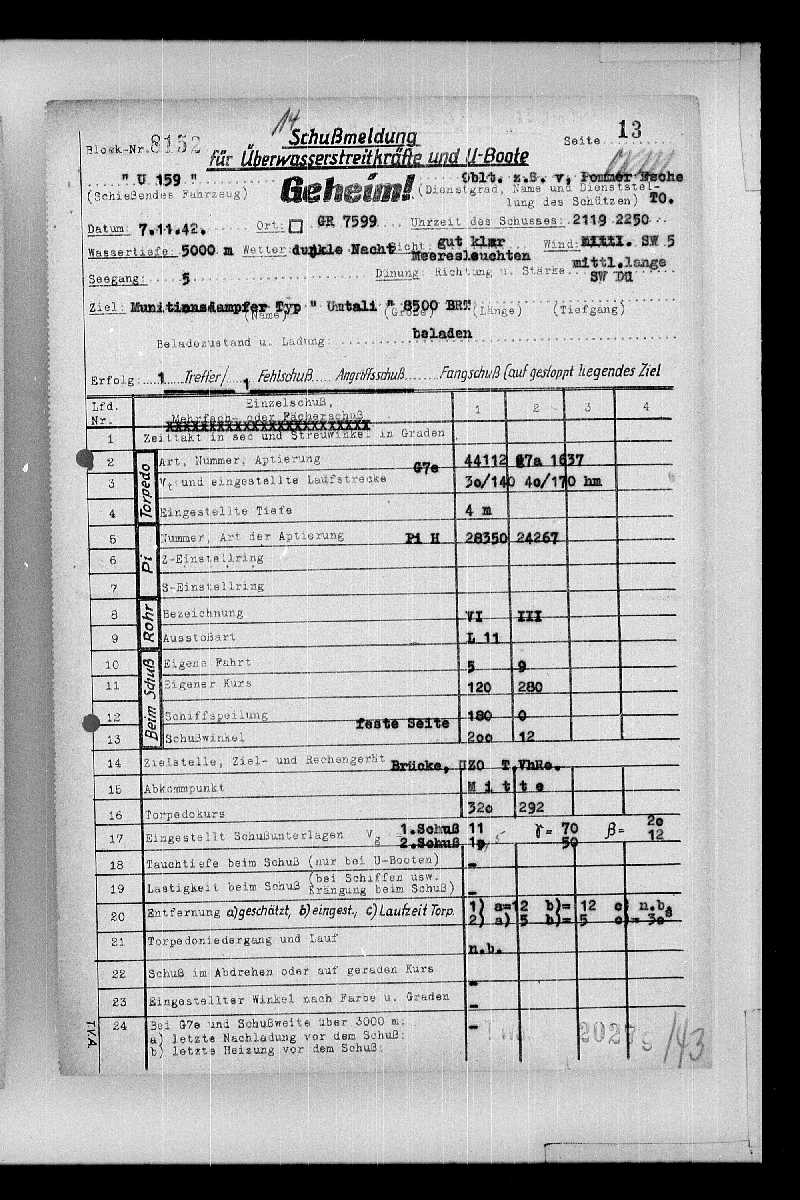 14 13
Schußmeldung
Block-Nr. 8152 Seite
für Überwasserstreitkräfte und U-Boote
" U 159 " Geheim! Oblt. z.S. v. Pommer Esche
(Schießendes Fahrzeug) (Dienstgrad, Name und Dienststel-
lung des Schützen) TO.
Datum: 7.11.42. Ort: GR 7599 Uhrzeit des Schusses: 2119 2250
Wassertiefe: 5000 m Wetter: dunkle Nacht Sicht: gut klar Wind: SW 5
Meeresleuchten
Seegang: 5 Dünung: Richtung u. Stärke mittl.lange
SW Dü
Ziel: Munitionsdampfer Typ " Umtali " 8500 BRT
(Name) (Größe) (Länge) (Tiefgang)
Beladezustand u. Ladung: beladen
Erfolg: 1 Treffer/ 1 Fehlschuß Angriffsschuß Fangschuß (auf gestoppt liegendes Ziel
Lfd. Nr. Einzelschuß, 1 2 3 4
Mehrfach- oder Fächerschuß
1 Zeittakt in sec und Streuwinkel in Graden
Torpedo
2 Art, Nummer, Aptierung G7e 44112 G7a 1637
3 Vt und eingestellte Laufstrecke 3o/140 4o/170 hm
4 Eingestellte Tiefe 4 m
Pi
5 Nummer, Art der Aptierung Pi H 28350 24267
6 Z-Einstellring
7 S-Einstellring
Rohr
8 Bezeichnung VI III
9 Ausstoßart L 11
Beim Schuß
10 Eigene Fahrt 5 9
11 Eigener Kurs 120 280
12 Schiffspeilung 180 0
feste Seite
13 Schußwinkel 2oo 12
14 Zielstelle, Ziel- und Rechengerät Brücke, UZO T.VhRe.
15 Abkommpunkt M i t t e
16 Torpedokurs 32o 292
17 Eingestellt Schußunterlagen Vg 1.Schuß 11 γ= 70 β= 2o
2.Schuß 50 12
18 Tauchtiefe beim Schuß (nur bei U-Booten) -
19 Lastigkeit beim Schuß (bei Schiffen usw. Krängung beim Schuß) -
20 Entfernung a) geschätzt, b) eingest., c) Laufzeit Torp. 1) a=12 b)= 12 c) n.b.
2) a) 5 b)= 5 c)= 3o s
21 Torpedoniedergang und Lauf n.b.
22 Schuß im Abdrehen oder auf geraden Kurs -
23 Eingestellter Winkel nach Farbe u. Graden -
24 Bei G7e und Schußweite über 3000 m: -
a) letzte Nachladung vor dem Schuß:
b) letzte Heizung vor dem Schuß:
TVA
2027 S /43